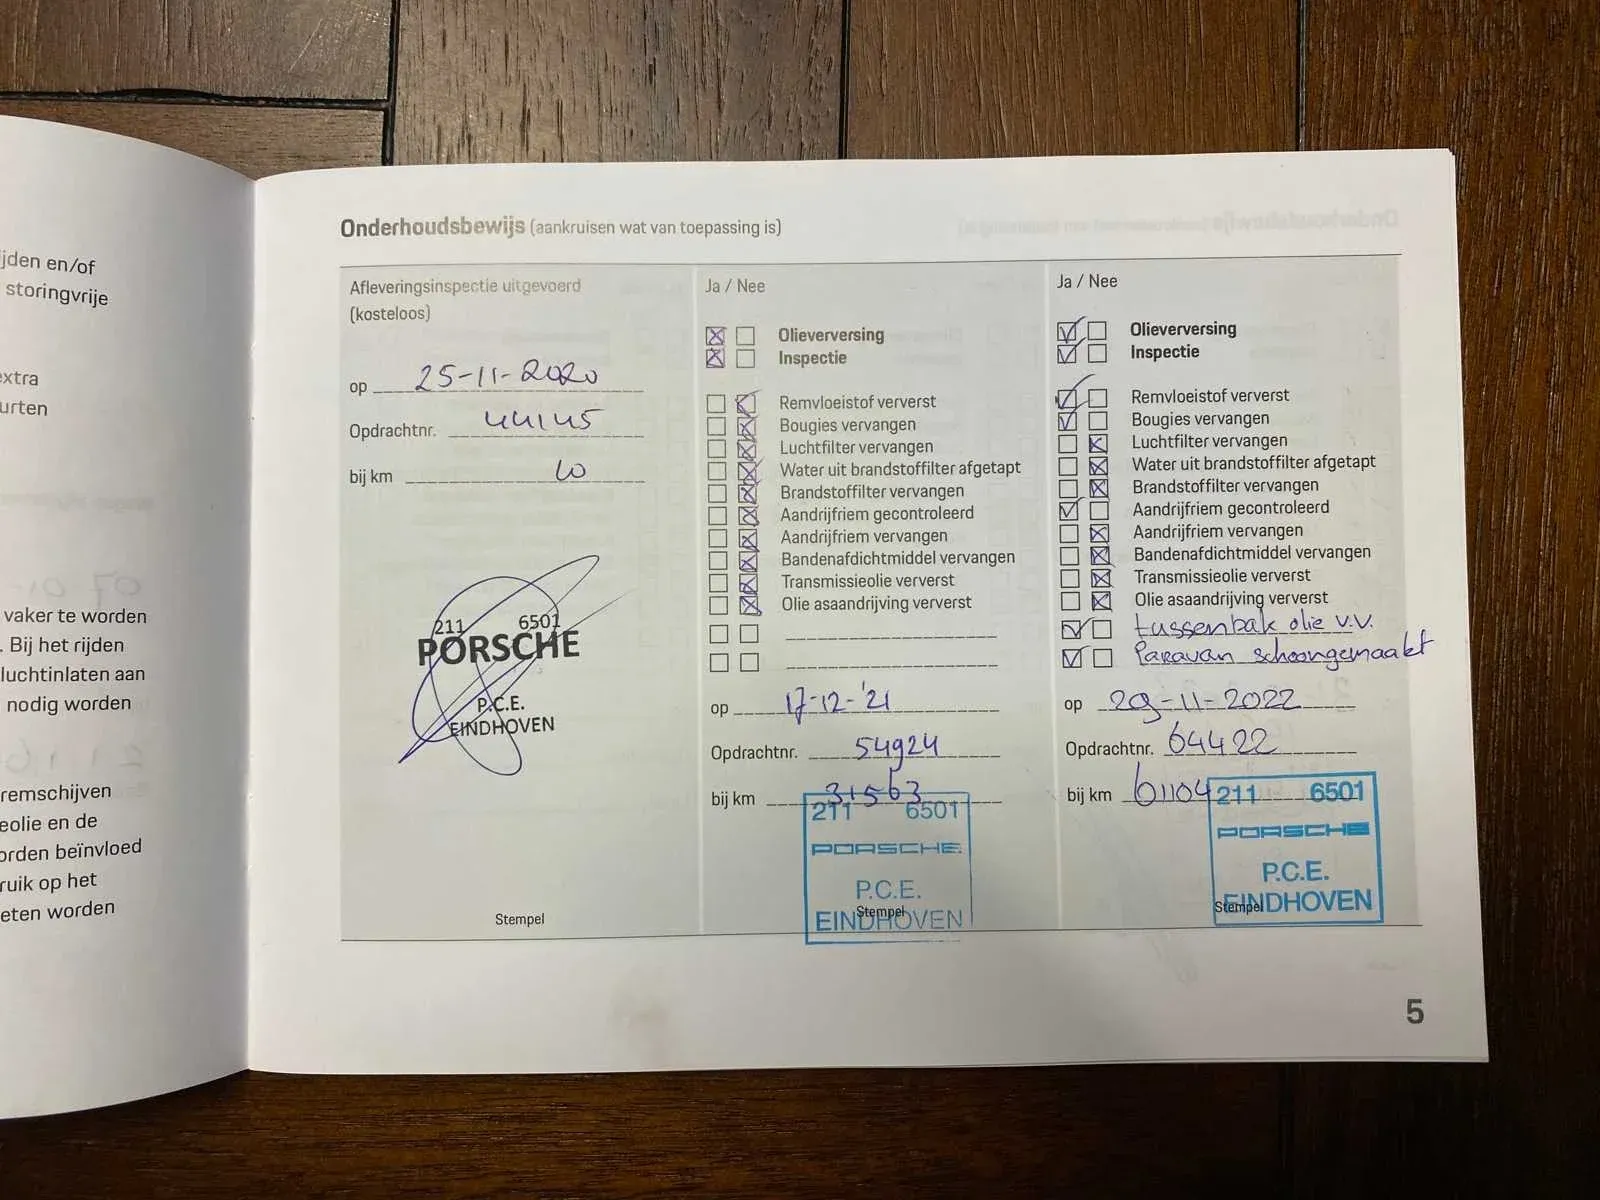 jden en/of
storingvrije
extra
urten
vaker te worden
. Bij het rijden
luchtinlaten aan
nodig worden
remschijven
eolie en de
orden beïnvloed
ruik op het
eten worden
Onderhoudsbewijs (aankruisen wat van toepassing is)
Afleveringsinspectie uitgevoerd
(kosteloos)
op 25-11-2020
Opdrachtnr. 44145
bij km 10
211 6501
PORSCHE
P.C.E.
EINDHOVEN
Stempel
Ja / Nee
Olieverversing
Inspectie
Remvloeistof ververst
Bougies vervangen
Luchtfilter vervangen
Water uit brandstoffilter afgetapt
Brandstoffilter vervangen
Aandrijfriem gecontroleerd
Aandrijfriem vervangen
Bandenafdichtmiddel vervangen
Transmissieolie ververst
Olie asaandrijving ververst
op 17-12-'21
Opdrachtnr. 54924
bij km 31563
211 6501
PORSCHE
P.C.E.
Stempel
EINDHOVEN
Ja / Nee
Olieverversing
Inspectie
Remvloeistof ververst
Bougies vervangen
Luchtfilter vervangen
Water uit brandstoffilter afgetapt
Brandstoffilter vervangen
Aandrijfriem gecontroleerd
Aandrijfriem vervangen
Bandenafdichtmiddel vervangen
Transmissieolie ververst
Olie asaandrijving ververst
tussenbak olie v.v.
Paravan schoongemaakt
op 29-11-2022
Opdrachtnr. 64422
bij km 61104
211 6501
PORSCHE
P.C.E.
Stempel
EINDHOVEN
5